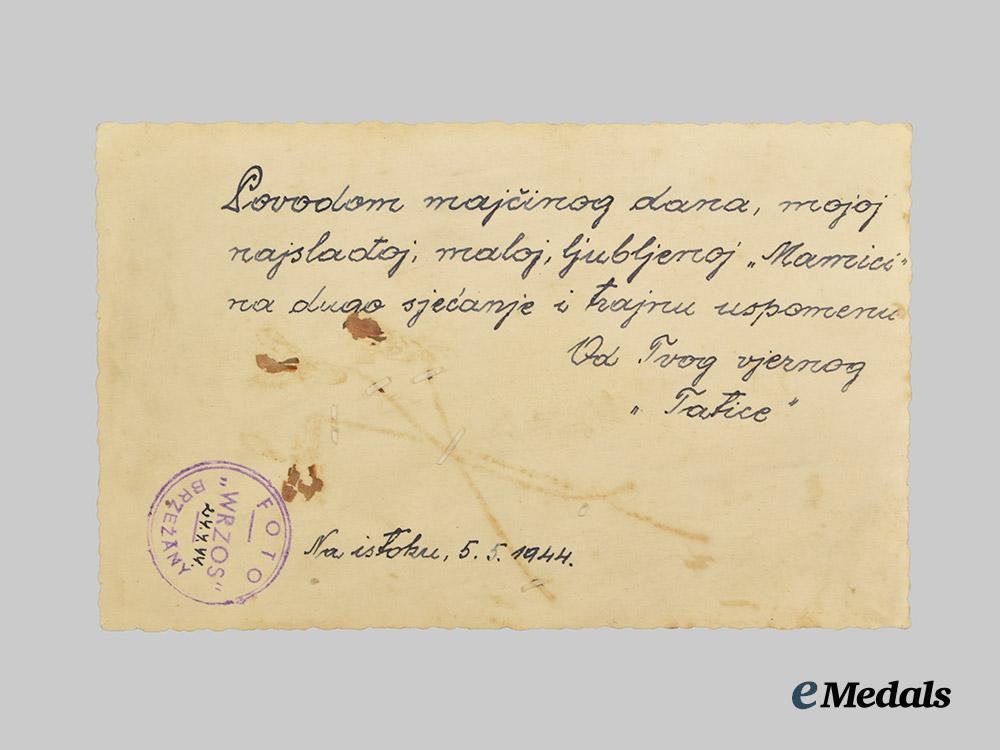 Povodom majčinog dana, mojoj
najslađoj, maloj, ljubljenoj „Mamici"
na dugo sjećanje i trajnu uspomenu
Od Tvog vjernog
„Tatice"
Na istoku, 5. 5. 1944.
FOTO
„WRZOS"
BRZEŻANY
eMedals